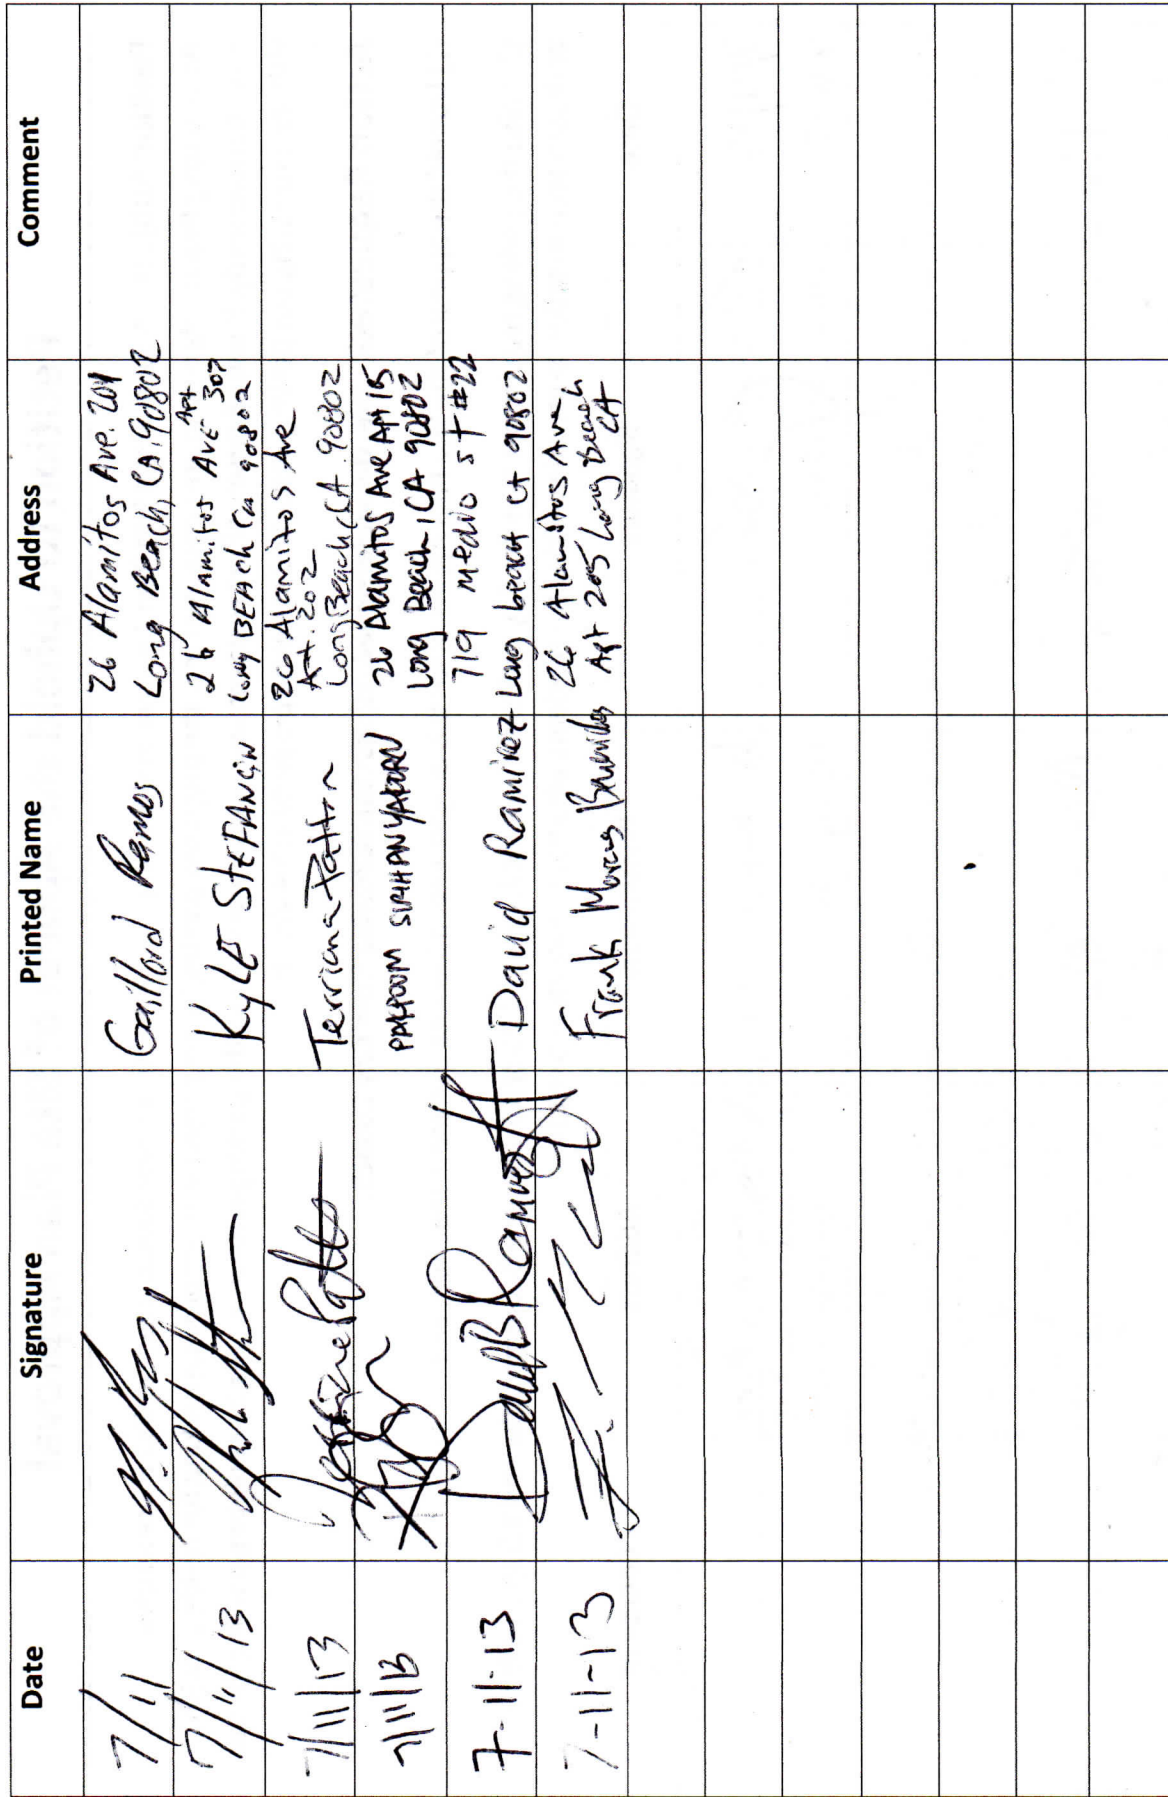 Date Signature Printed Name Address Comment
7/11 Gaillord Ramos 26 Alamitos Ave. 201
Long Beach, CA, 90802
7/11/13 KYLE STEFANCIN 26 Alamitos AVE Apt 307
Long BEACH Ca 90802
7/11/13 Patton 26 Alamitos Ave
Apt. 202
Long Beach, CA. 90802
7/11/13 26 Alamitos Ave Apt 15
Long Beach, CA 90802
7-11-13 David B Ramirez David Ramirez 719 medio st #22
Long beach CA 90802
7-11-13 Frank Marcus 26 Alamitos Ave
Apt 205 Long Beach
CA